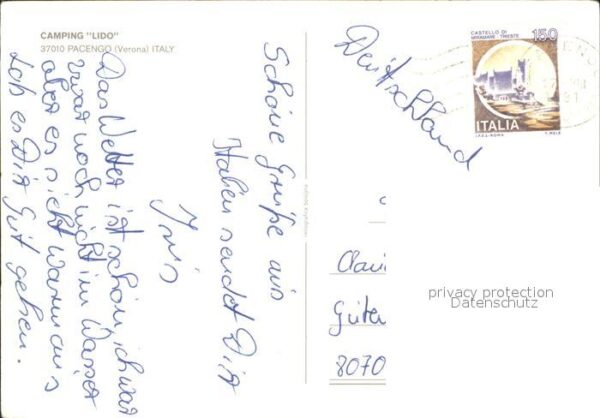 CAMPING "LIDO"
37010 PACENGO (Verona) ITALY
Schöne Grüße aus
Italien sendet Dir
Iris
Das Wetter ist schön, ich war
zwar noch nicht im Wasser
aber es sieht warm aus
Ich es Dir gut gehen.
Deutschland
CASTELLO DI
MIRAMARE TRIESTE
150
ITALIA
I.P.Z.S. ROMA
Güte
8070
privacy protection
Datenschutz